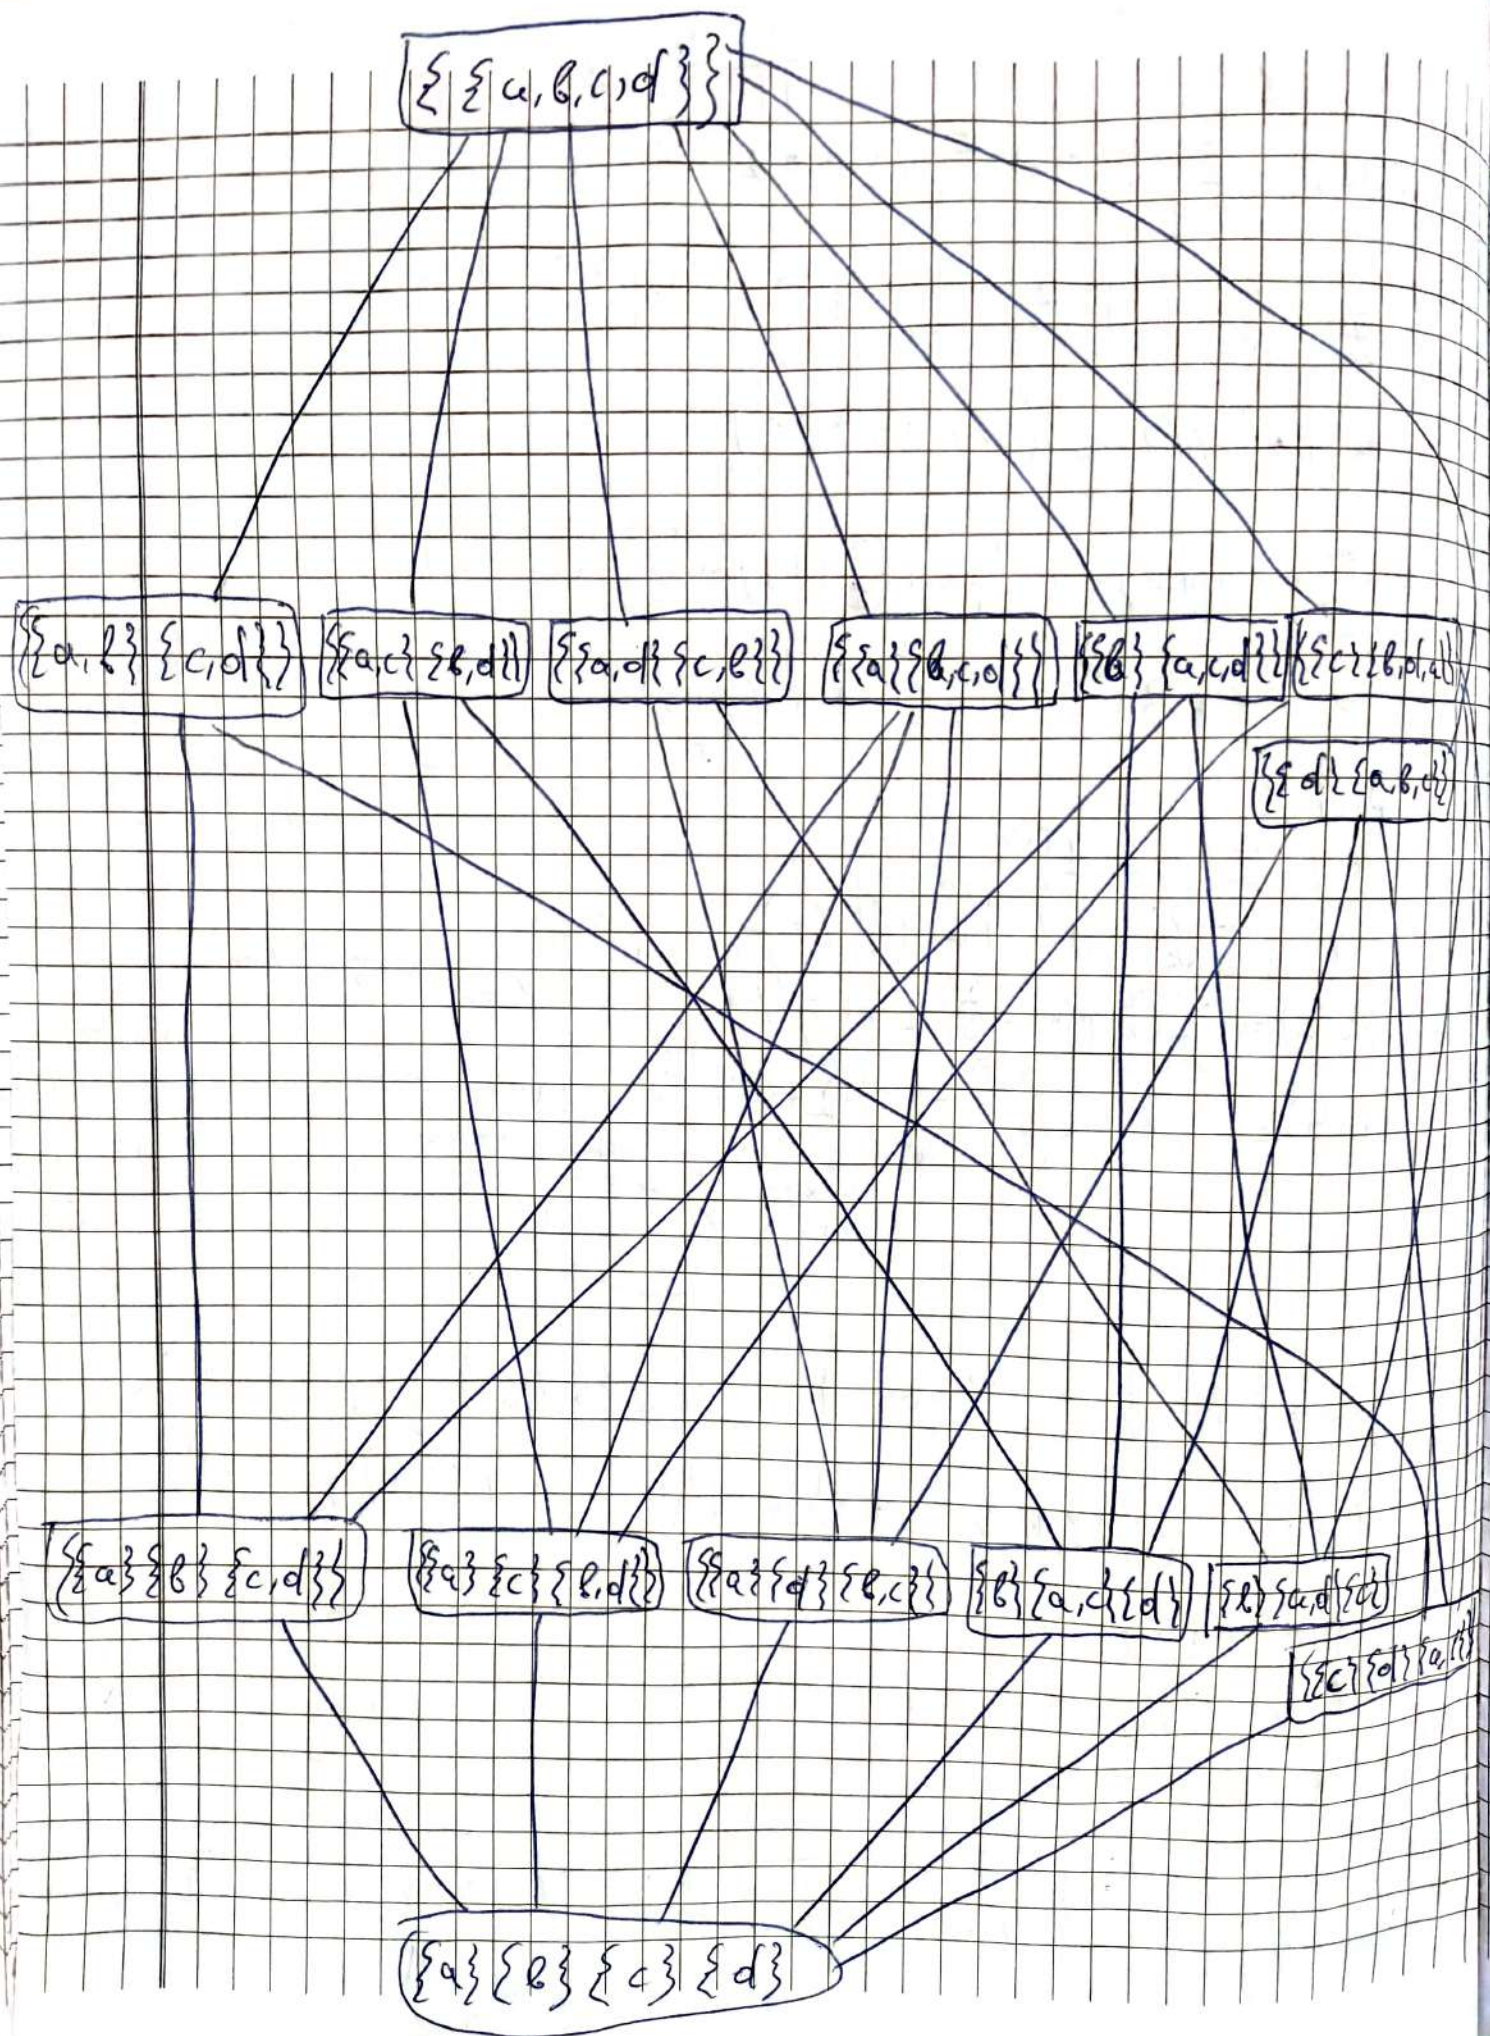 {{a,b,c,d}}
{{a,b} {c,d}} {{a,c} {b,d}} {{a,d} {c,b}} {{a} {b,c,d}} {{b} {a,c,d}} {{c} {b,d,a}}
{{d} {a,b,c}}
{{a} {b} {c,d}} {{a} {c} {b,d}} {{a} {d} {b,c}} {{b} {a,c} {d}} {{b} {a,d} {c}}
{{c} {d} {a,
{a} {b} {c} {d}